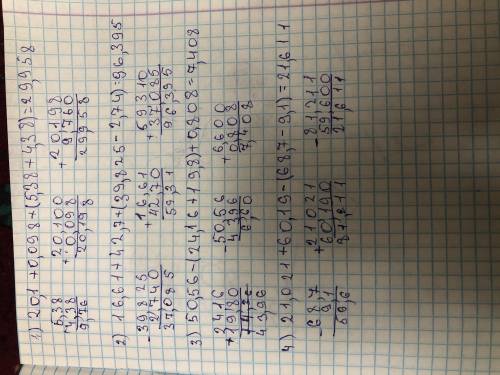 1) 20,1 + 0,098 + (5,38 + 4,38) = 29,958
+ 5,38 + 20,100 + 20,198
4,38 0,098 9,760
9,76 20,198 29,958
2) 16,61 + 42,7 + (39,825 - 2,74) = 96,395
- 39,825 + 16,61 + 59,310
2,740 42,70 37,085
37,085 59,31 96,395
3) 50,56 - (24,16 + 19,8) + 0,808 = 7,408
+ 24,16 - 50,56 + 6,600
19,80 43,96 0,808
6,60 7,408
43,96
4) 21,021 + 60,19 - (68,7 - 9,1) = 21,611
- 68,7 + 21,021 - 81,211
9,1 60,190 59,600
59,6 81,211 21,611